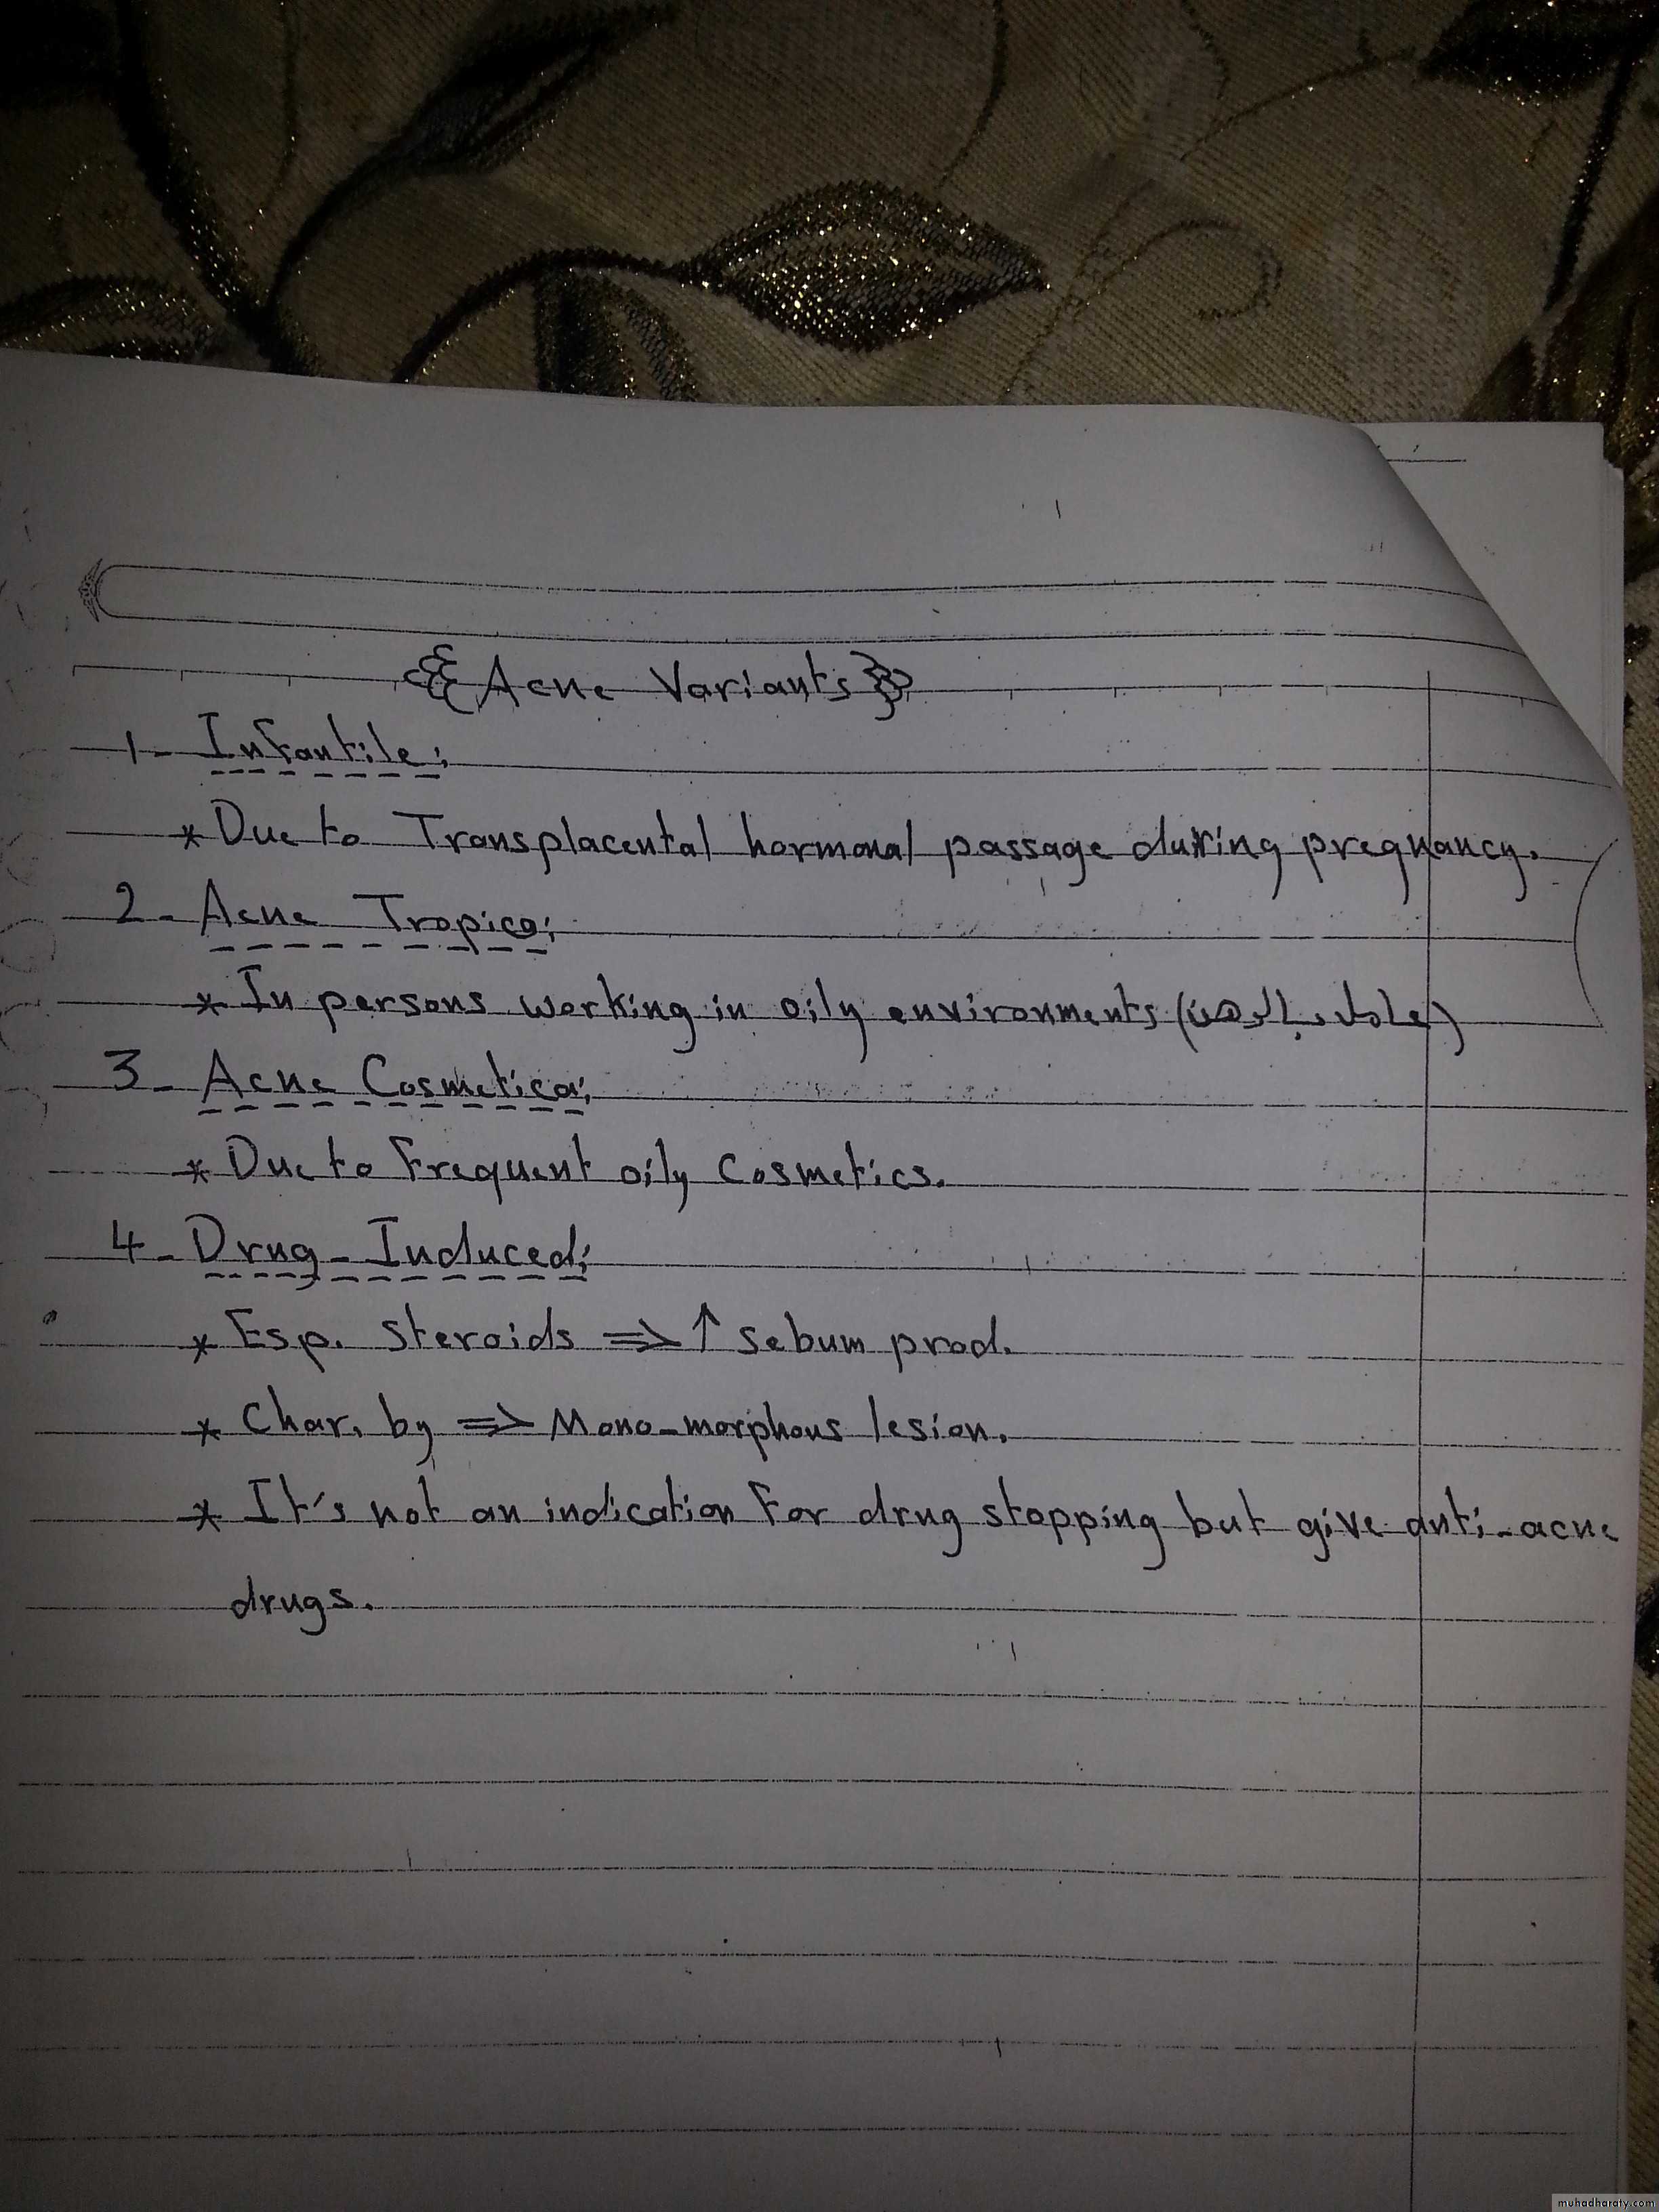 {{Acne Variants}}
1- Infantile:
* Due to Transplacental hormonal passage during pregnancy.
2- Acne Tropica:
* In persons working in oily environments (عامل بالدهن)
3- Acne Cosmetica:
* Due to Frequent oily Cosmetics.
4- Drug-Induced:
* Esp. Steroids => ↑ sebum prod.
* Char. by => Mono-morphous lesion.
* It's not an indication For drug stopping but give anti-acne
drugs.
muhadharaty.com